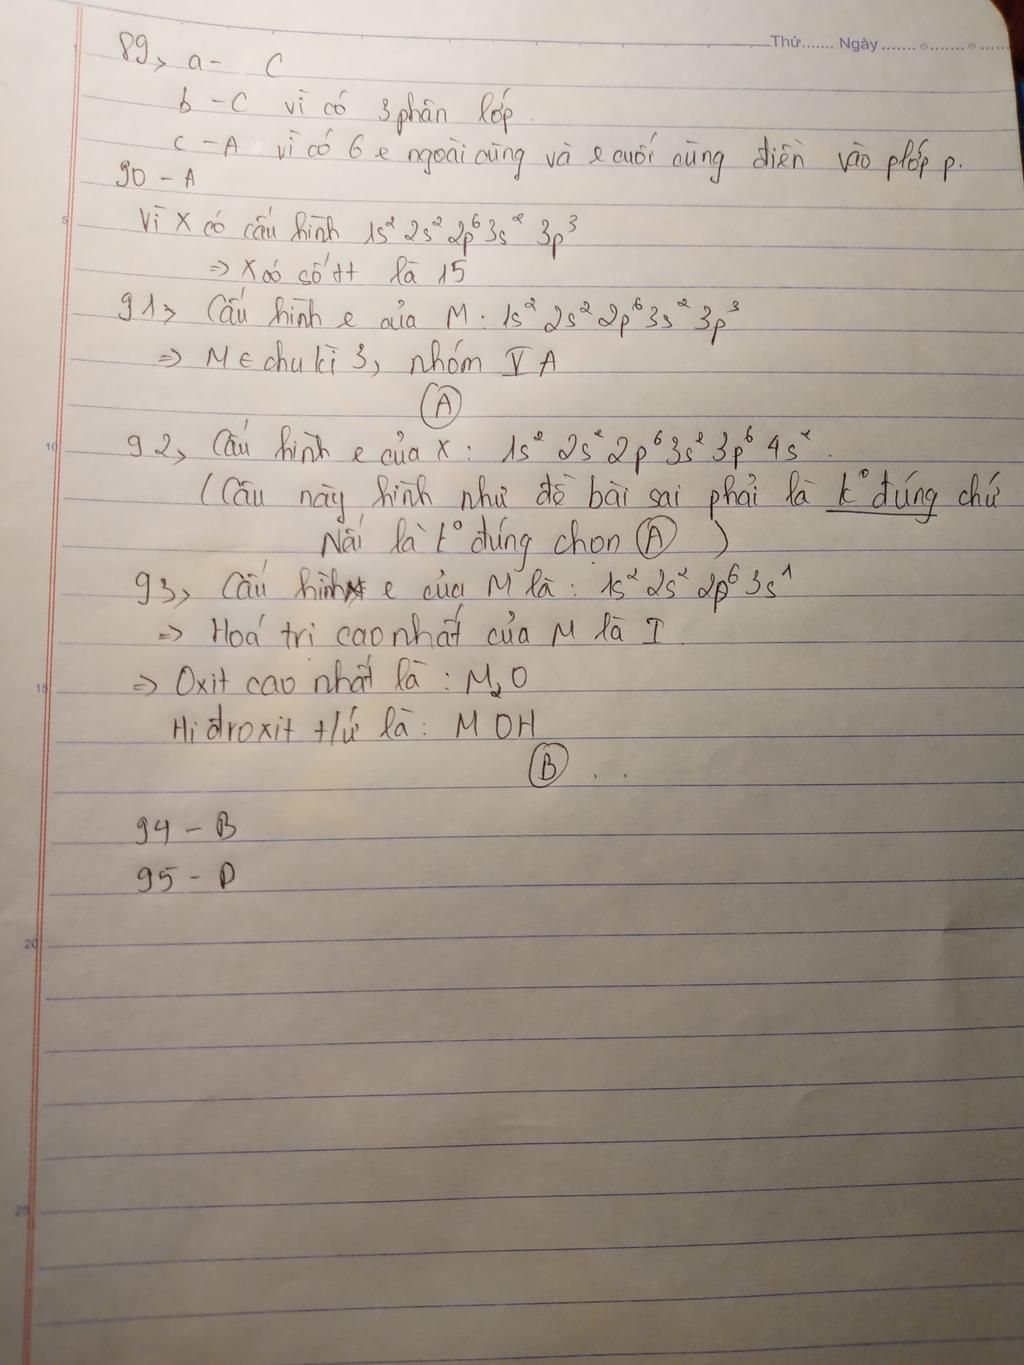 Thứ....... Ngày ....... ....... .......
89, a - C
b - C vì có 3 phân lớp.
c - A vì có 6 e ngoài cùng và e cuối cùng điền vào plớp p.
90 - A
Vì X có cấu hình 1s² 2s² 2p⁶ 3s² 3p³
⇒ X có số tt là 15
91, Cấu hình e của M: 1s² 2s² 2p⁶ 3s² 3p³
⇒ M ∈ chu kì 3, nhóm V A
A
92, Cấu hình e của X: 1s² 2s² 2p⁶ 3s² 3p⁶ 4s².
(Câu này hình như đề bài sai phải là k° đúng chứ
Nếu là k° đúng chọn A)
93, Cấu hình e của M là: 1s² 2s² 2p⁶ 3s¹
⇒ Hoá trị cao nhất của M là I
⇒ Oxit cao nhất là: M₂O
Hiđroxit t/ứ là: MOH
B ..
94 - B
95 - D
5
10
15
20
25